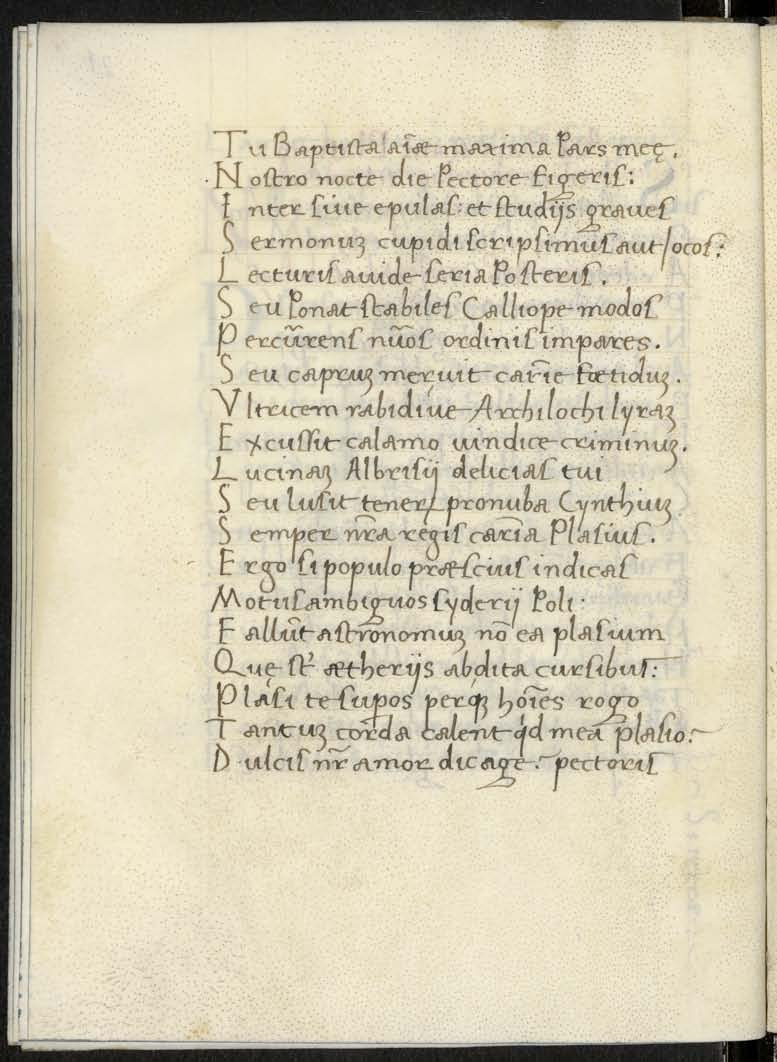 Tu Baptista aīæ maxima Pars meę.
Nostro nocte die Pectore figeris:
Inter siue epulas: et studijs graues
Sermonuꝫ cupidi scripsimus aut Jocos:
Lecturis auide seria Posteris.
Seu Ponat stabiles Calliope modos
Percūrens nūos ordinis impares.
Seu capruꝫ meruit carīe fœtiduꝫ.
Vltricem rabidiue Archilochi lyraꝫ
Excussit calamo uindice criminuꝫ.
Lucinaꝫ Albrisij delicias tui
Seu lusit tener pronuba Cynthiuꝫ
Semper nr̄a regis carīa Plasius.
Ergo si populo præscius indicas
Motus ambiguos syderij Poli.
Fallūt astrōnomuꝫ nō ea plasium
Quę st̄ ætherijs abdita cursibus:
Plasi te supos perqꝫ hoīes rogo
Tantuꝫ cord̄a calent qd mea plasio?
Dulcis nr̄ amor dic age? pectoris